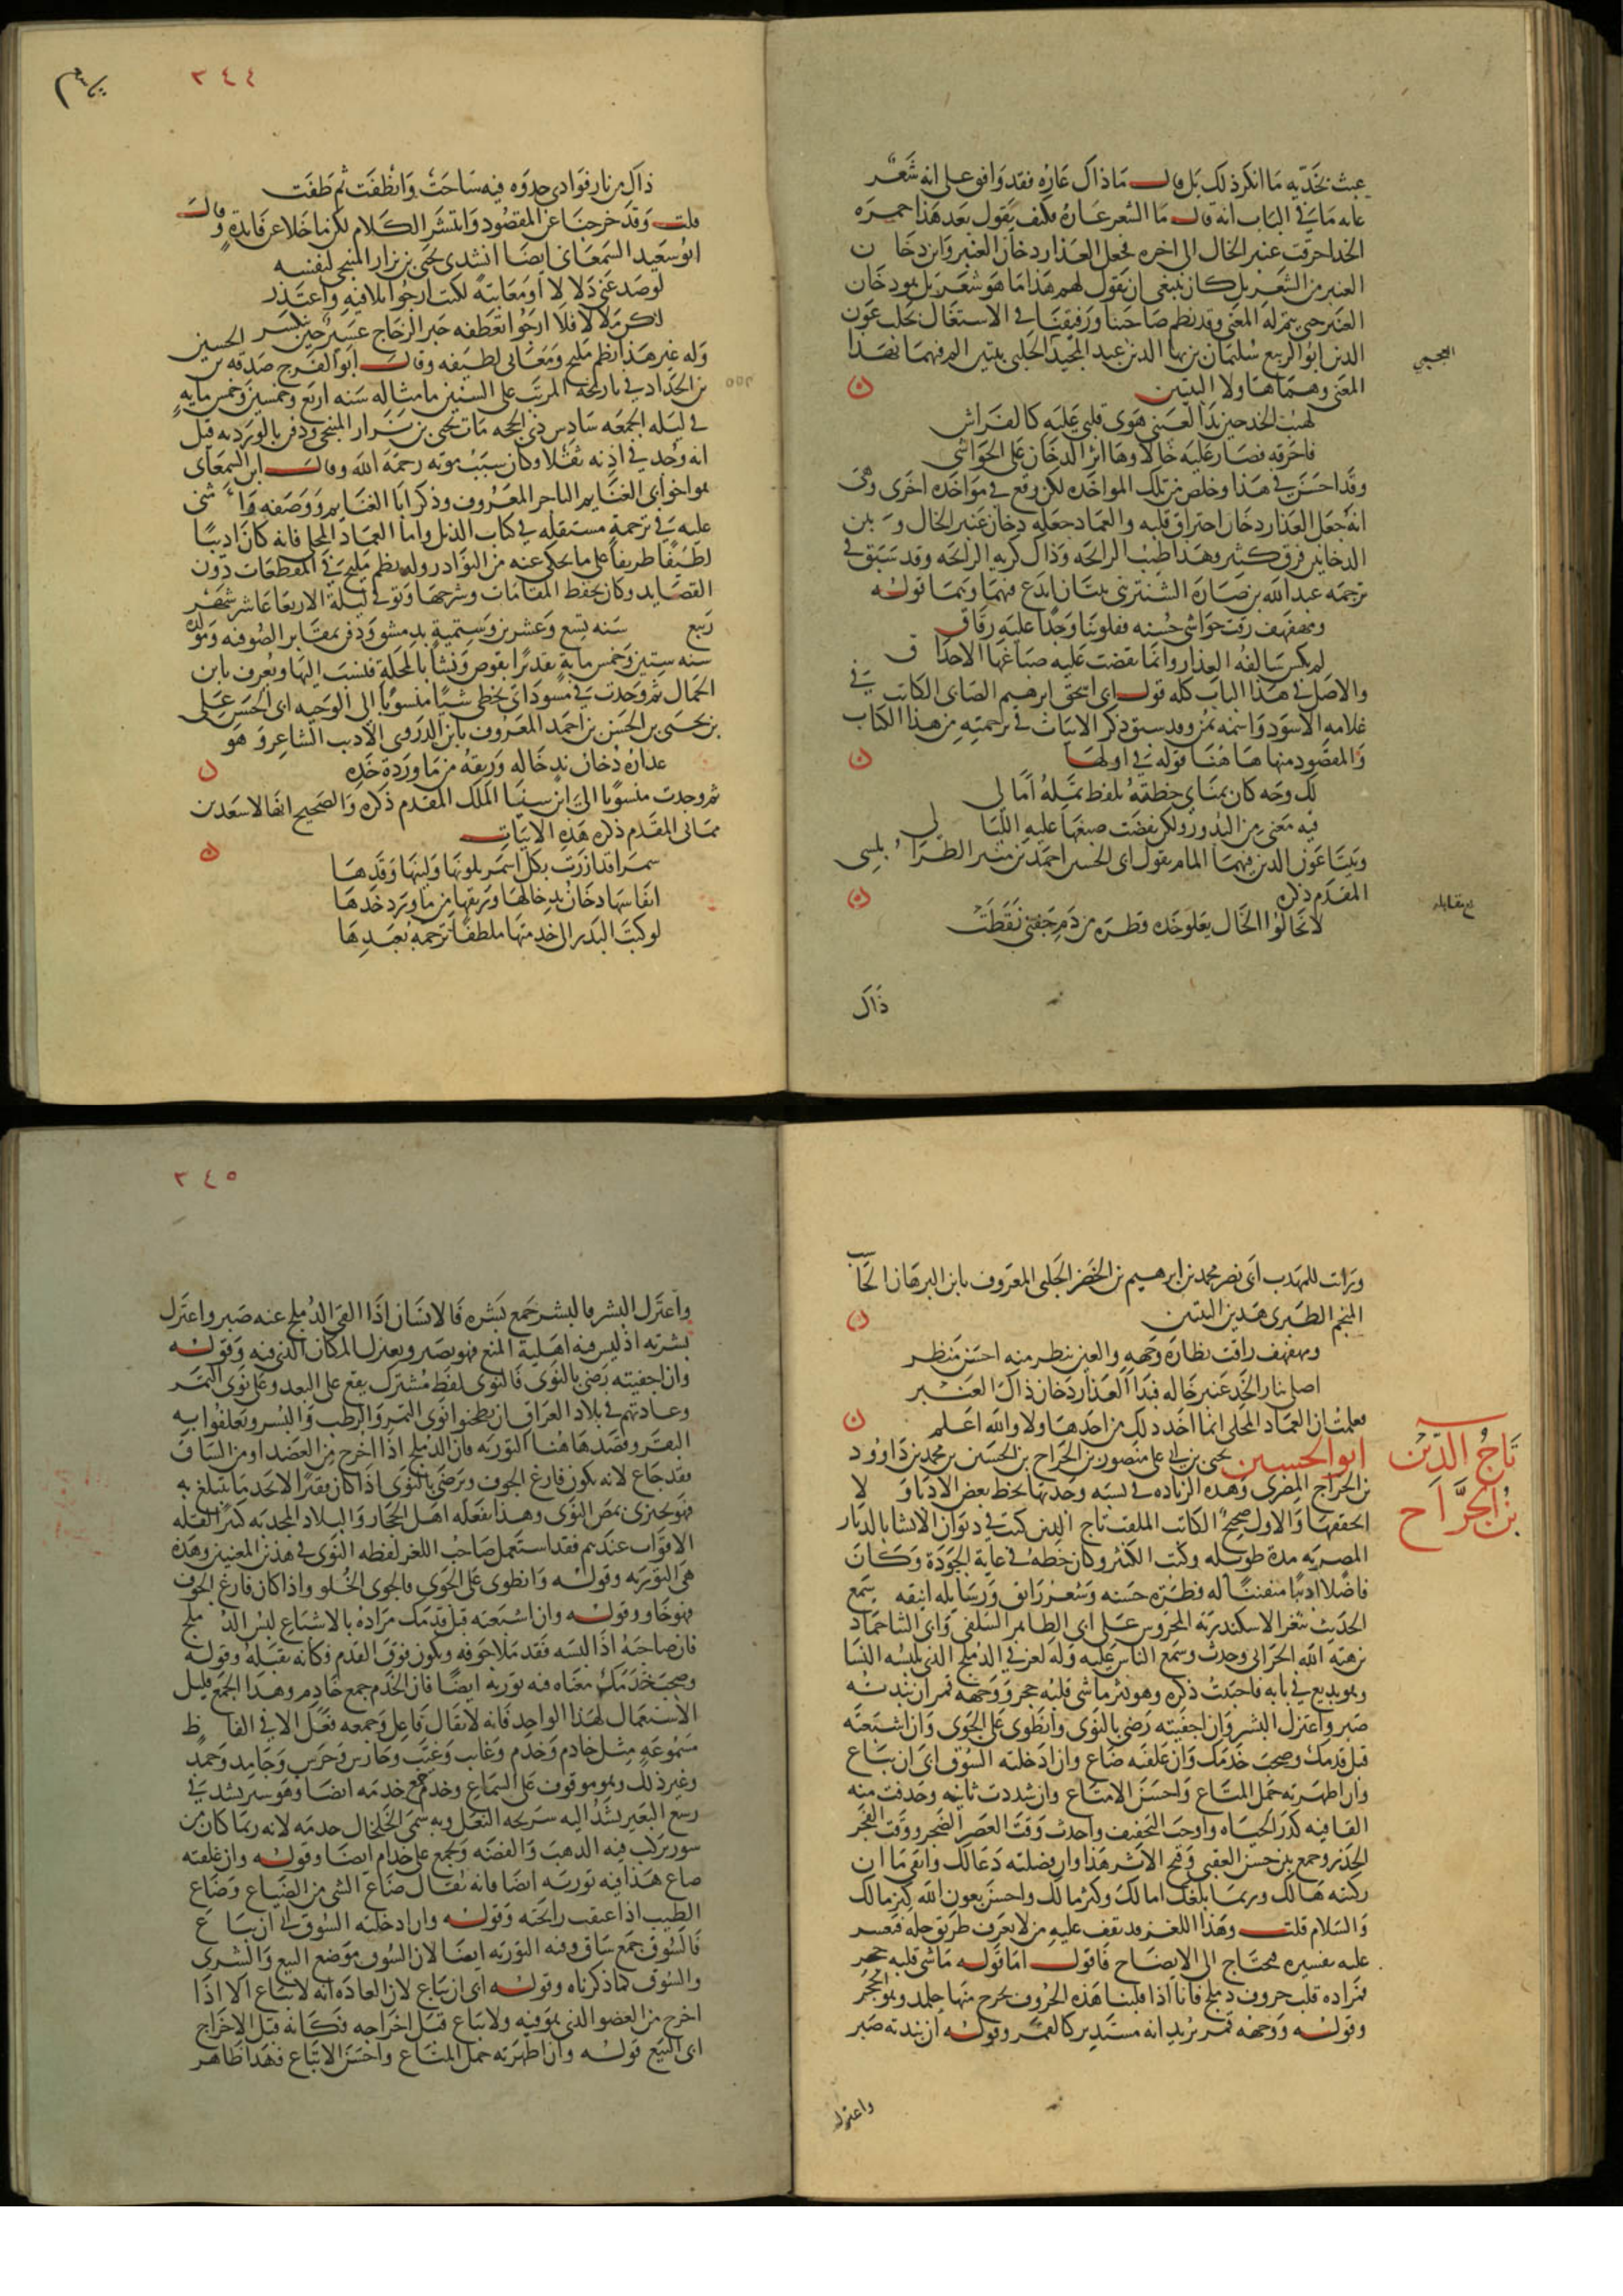 عبث بخديه ما انكر ذلك بل قال ماذاك عذاره فقد وافق على انه شعر
غاية ما في الباب انه قال ما الشعر عاره فكيف يقول بعد هذا حمرة
الخد احرقت عنبر الخال الى اخره فجعل العذار دخان العنبر واين دخان
العنبر من الشعر بل كان ينبغي ان يقول لهم هذا ما هو شعر بل هو دخان
العنبر حتى يتم له المعنى وقد نظم صاحبنا ورفيقنا في الاشتغال بحلب عون
الدين ابو الربيع سليمان بن بها الدين عبد المجيد الحلبي بيتين الم فيهما بهذا
العجمي
المعنى وهما هاولا البيتين
لهيب الخد حين بدا لعيني هوى قلبي عليه كالفراش
فاحرقه فصار عليه خالا وها اثر الدخان على الحواشي
وقد احسن في هذا وخلص من تلك المواخذه لكن وقع في مواخذه اخرى وهى
انه جعل العذار دخان احتراق قلبه والعماد جعله دخان عنبر الخال وبين
الدخانين فرق كثير وهذا طيب الرائحه وذاك كريه الرائحه وقد سبق في
ترجمه عبد الله بن صارة الشنتريني بيتان ابدع فيهما وهما قوله
ومهفهف رقت حواشي حسنه فقلوبنا وجدا عليه رقاق
لم يكس سالفه العذار وانما نفضت عليه صباغها الاحداق
والاصل في هذا الباب كله قول ابي اسحق ابرهيم الصابي الكاتب في
غلامه الاسود واسمه يمن وقد سبق ذكر الابيات في ترجمته من هذا الكتاب
والمقصود منها هاهنا قوله في اولها
لك وجه كان يمناي خطته بلفظ تمله امالي
فيه معنى من البدور ولكن نفضت صبغها عليه الليالي
وبيتا عون الدين فيهما المام بقول ابي الحسين احمد بن منير الطرابلسي
المقدم ذكره
بلغ مقابله
لا تخالوا الخال يعلو خده قطره من دم جفني نقطت
ذاك
٢٤٤
ذاك من نار فوادي جذوه فيه ساخت وانطفت ثم طفت
قلت وقد خرجنا عن المقصود وانتشر الكلام لكن ما خلا عن فايدة وقال
ابو سعيد السمعاني ايضا انشدني يحيى بن نزار المنبجي لنفسه
لو صد عني دلالا او معاتبة لكنت ارجو تلافيه واعتذر
لكن ملالا فلا ارجو تعطفه جبر الزجاج عسير حين ينكسر
وله غير هذا نظم مليح ومعاني لطيفه وقال ابو الفرج صدقه بن الحسين
بن الحداد في تاريخه المرتب على السنين ما مثاله سنه اربع وخمسين وخمس مايه
في ليله الجمعه سادس ذي الحجه مات يحيى بن نزار المنبجي ودفن بالورديه قيل
انه وجد في اذنه ثقلا وكان سبب موته رحمه الله وقال ابن السمعاني
هو اخو ابي الغنايم التاجر المعروف وذكر ابا الغنايم ووصفه واثنى
عليه في ترجمة مستقله في كتاب الذيل واما العماد المحلي فانه كان اديبا
لطيفا ظريفا على ما يحكى عنه من النوادر وله نظم مليح في المقطعات دون
القصايد وكان يحفظ المقامات وشرحها وتوفي ليلة الاربعا عاشر شهر
ربيع سنه تسع وعشرين وستمية بدمشق ودفن بمقابر الصوفيه ومولده
سنه ستين وخمس ماية تقديرا بقوص ونشا بالمحلة فنسب اليها ويعرف بابن
الجمال ثم وجدت في مسوداتي بخطي شيا منسوبا الى الوجيه ابي الحسن علي
بن يحيى بن الحسن بن احمد المعروف بابن الذروي الاديب الشاعر وهو
عذاره دخان ند خاله وريقه من ماورد خده
ثم وجدت منسوبا الى ابن سينا الملك المقدم ذكره والصحيح انها لاسعد بن
مماتي المقدم ذكره هذه الابيات
سمرا قد ازرت بكل اسمر بلونها ولينها وقدها
انفاسها دخان ند خالها وريقها من ماورد خدها
لو كتب البدر الى خدمتها ملطفا ترجمه بعبدها
ورايت للمهذب ابي نصر محمد بن ابرهيم بن الخضر الحلبي المعروف بابن البرهان الحاسب
المنجم الطبري هذين البيتين
ومهفهف راقت نظارة وجهه والعين تنظر منه احسن منظر
اصلى بنار الخد عنبر خاله فبدا العذار دخان ذاك العنبر
فعلمت ان العماد المحلي انما اخذ ذلك من احدها ولا والله اعلم
تاج الدين
بن الجراح
ابو الحسين يحيى بن ابي علي منصور بن الجراح بن الحسين بن محمد بن داوود
بن الجراح المصري وهذه الزياده في نسبه وجدتها بخط بعض الادبا ولا
احققها والاول صحيح الكاتب الملقب تاج الدين كتب في ديوان الانشا بالديار
المصريه مدة طويله وكتب الكثير وكان خطه في غاية الجودة وكان
فاضلا اديبا متفننا له فطره حسنه وشعر رايق ورسايل انيقه سمع
الحديث بثغر الاسكندرية المحروس على ابي الطاهر السلفي وابي الثنا حماد
بن هبة الله الحراني وحدث وسمع الناس عليه وله لغز في الدملج الذي تلبسه النسا
وهو بديع في بابه فاحببت ذكره وهو نثر ما شي قلبه حجر ووجهه قمر ان نبذته
صبر واعتزل البشر وان اجعته رضي بالنوى وانطوى على الجوى وان اشبعته
قبل قدمك وصحب خدمك وان غلفته ضاع وان ادخلته السوق ابى ان يباع
وان اظهرته جمل المتاع واحسن الامتاع وان شددت ثانيه وحذفت منه
القافيه كدر الحياه واوجب التخفيف واحدث وقت العصر الضجر ووقت الفجر
الخدر وجمع بين حسن العقبى وقبح الاثر هذا وان فصلته دعا لك وابقى ما ان
ركبته هالك وربما بلغك امالك وكثر مالك واحسن بعون الله كنز مالك
والسلام قلت وهذا اللغز قد يقف عليه من لا يعرف طريق حله فتعسر
عليه تفسيره فيحتاج الى الايضاح فاقول اما قوله ما شي قلبه حجر
فمراده قلب حروف دملج فانا اذا قلبنا هذه الحروف يخرج منها جلمد وهو الحجر
وقوله ووجهه قمر يريد انه مستدير كالقمر وقوله ان نبذته صبر
واعتزل
٢٤٥
واعتزل البشر فالبشر جمع بشره فالانسان اذا القى الدملج عنه صبر واعتزل
بشرته اذ ليس فيه اهلية المنع فهو يصبر ويعتزل المكان الذي فيه وقوله
وان اجعته رضي بالنوى فالنوى لفظ مشترك يقع على البعد وعلى نوى التمر
وعادتهم في بلاد العراق ان يطحنوا نوى التمر والرطب والبسر ويعلفوا به
البقر وقصد هاهنا التوريه فان الدملج اذا اخرج من العضد او من الساق
فقد جاع لانه يكون فارغ الجوف ويرضى بالنوى اذا كان فقيرا لا يجد ما يتبلغ به
فهو يجتزي بمص النوى وهذا يفعله اهل الحجاز والبلاد المجدبه كثيرا لقله
الاقوات عندهم فقد استعمل صاحب اللغز لفظه النوى في هذين المعنيين وهذه
هي التوريه وقوله وانطوى على الجوى فالجوى الخلو واذا كان فارغ الجوف
فهو خاو وقوله وان اشبعته قبل قدمك مراده بالاشباع لبس الدملج
فان صاحبه اذا لبسه فقد ملا جوفه ويكون فوق القدم فكانه يقبله وقوله
وصحب خدمك معناه فيه توريه ايضا فان الخدم جمع خادم وهذا الجمع قليل
الاستعمال لهذا الواحد فانه لا يقال فاعل وجمعه فعل الا في الفاظ
مسموعه مثل خادم وخدم وغايب وغيب وحارس وحرس وجامد وجمد
وغير ذلك وهو موقوف على السماع وخدم جمع خدمه ايضا وهو سير يشد في
رسغ البعير يشد اليه سريحه النعل وبه سمي الخلخال خدمه لانه ربما كان من
سيور يركب فيه الذهب والفضه ويجمع على خدام ايضا وقوله وان غلفته
ضاع هذا فيه توريه ايضا فانه يقال ضاع الشي من الضياع وضاع
الطيب اذا عبقت رائحته وقوله وان ادخلته السوق ابى ان يباع
فالسوق جمع ساق وفيه التوريه ايضا لان السوق موضع البيع والشرى
والسوق كما ذكرناه وقوله ابى ان يباع لان العاده انه لا يباع الا اذا
اخرج من العضو الذي هو فيه ولا يباع قبل اخراجه فكانه قبل الاخراج
ابى البيع قوله وان اظهرته جمل المتاع واحسن الامتاع فهذا ظاهر